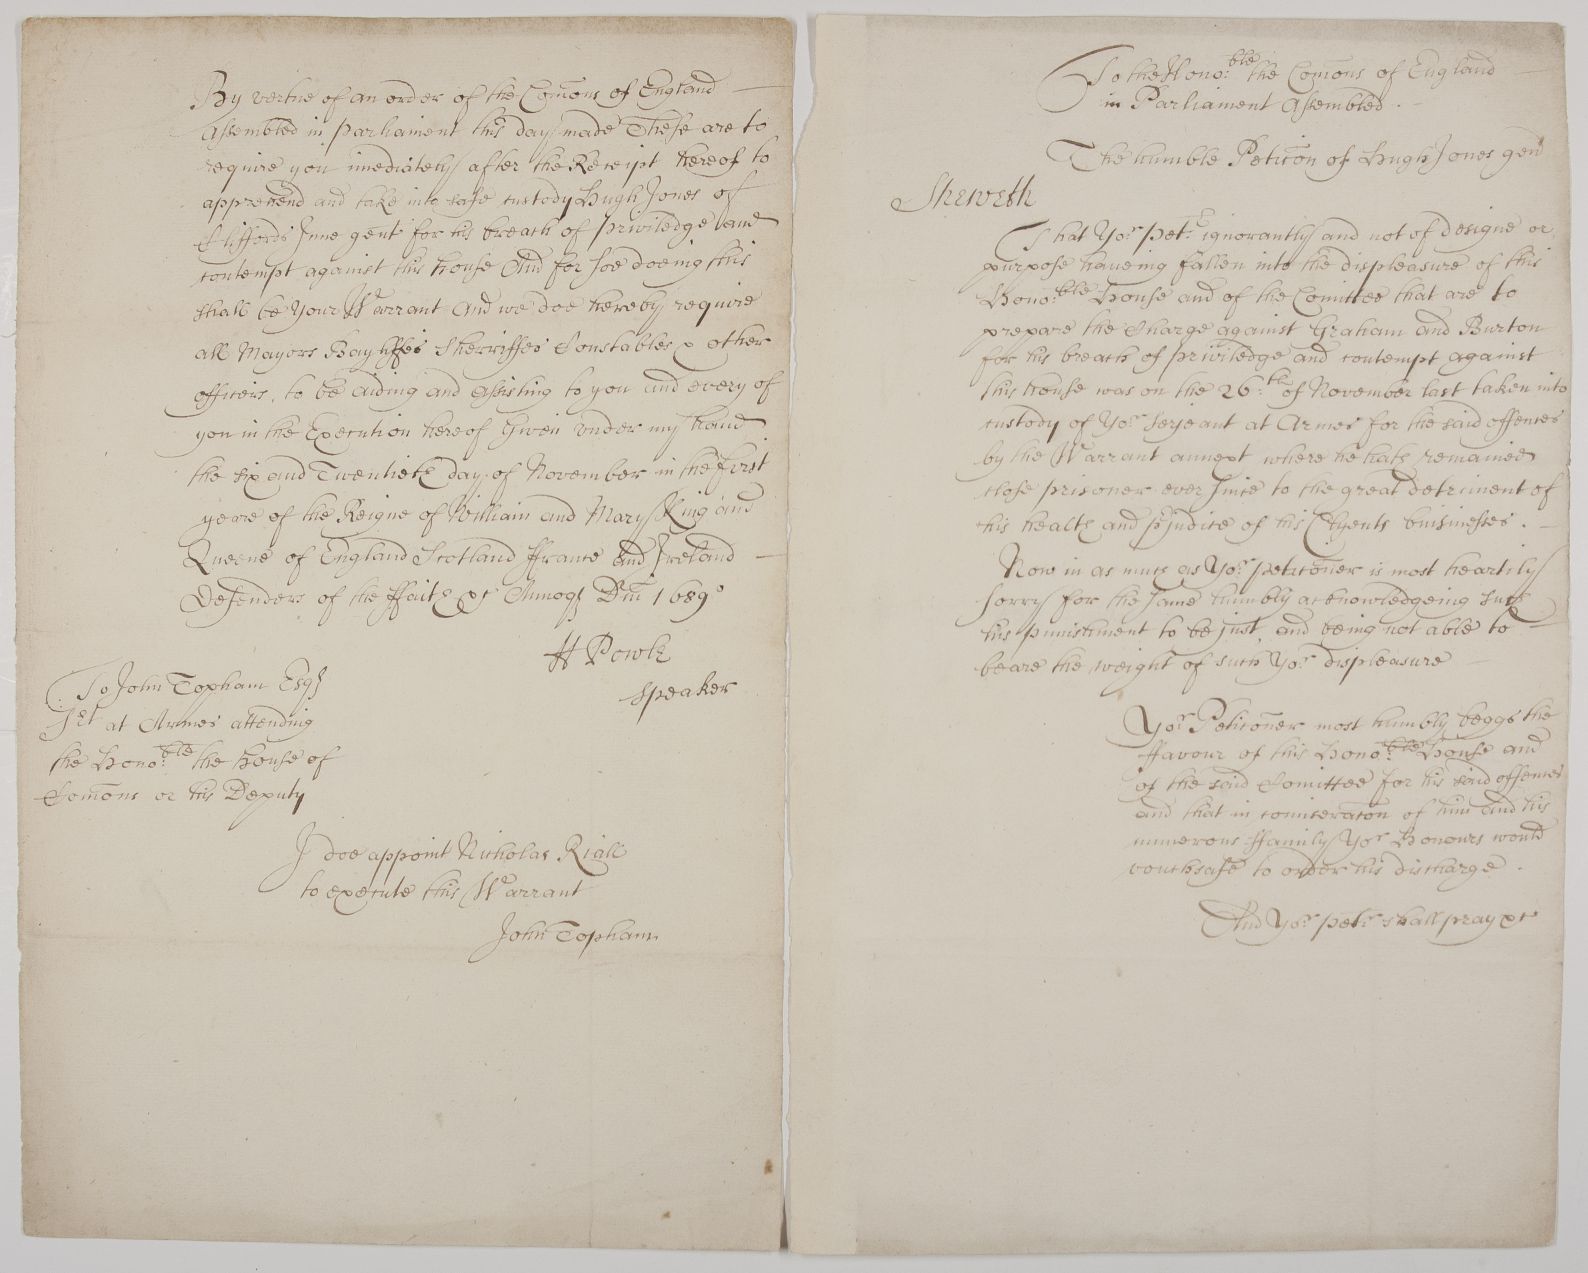 By vertue of an order of the Com̃ons of England
Assembled in parliament this day made These are to
require you im̃ediately after the Receipt hereof to
apprehend and take into safe custody Hugh Jones of
Cliffords Inne gent for his breach of priviledge and
contempt against this house And for soe doeing this
shall be Your Warrant And we doe hereby require
all Mayors Bayliffes Sherriffes Constables & other
officers, to be aiding and assisting to you and every of
you in the Execution hereof Given under my hand
the six and Twentieth day of November in the first
yeare of the Reigne of William and Mary King and
Queene of England Scotland ffrance and Ireland
Defenders of the ffaith &c Annoq Dm̃ 1689
H Powle
Speaker
To John Topham Esq
Sert at Armes attending
the Hono:ble the house of
Com̃ons or his Deputy
I doe appoint Nicholas Riall
to execute this Warrant
John Topham
To the Hono:ble the Com̃ons of England
in Parliament Assembled.
The humble Petic̃on of Hugh Jones gen
Sheweth
That Yor petr ignorantly and not of designe or
purpose haveing fallen into the displeasure of this
Hono:ble House and of the Com̃ittee that are to
prepare the Charge against Graham and Burton
for his breach of priviledge and contempt against
this house was on the 26th of November last taken into
custody of Yor Serjeant at Armes for the said offences
by the Warrant annext where he hath remained
close prisoner ever since to the great detriment of
his health and p̱judice of his Clyents buisinesses.
Now in as much as Yor petic̃oner is most heartily
sorry for the same humbly acknowledgeing such
his punishment to be just, and being not able to
beare the weight of such Yor displeasure
Yor Petic̃oner most humbly beggs the
ffavour of this Hono:ble House and
of the said Com̃ittee for his said offences
and that in com̃iserac̃on of him and his
numerous ffamily Yor Honours would
vouchsafe to order his discharge.
And Yor petr shall pray &c